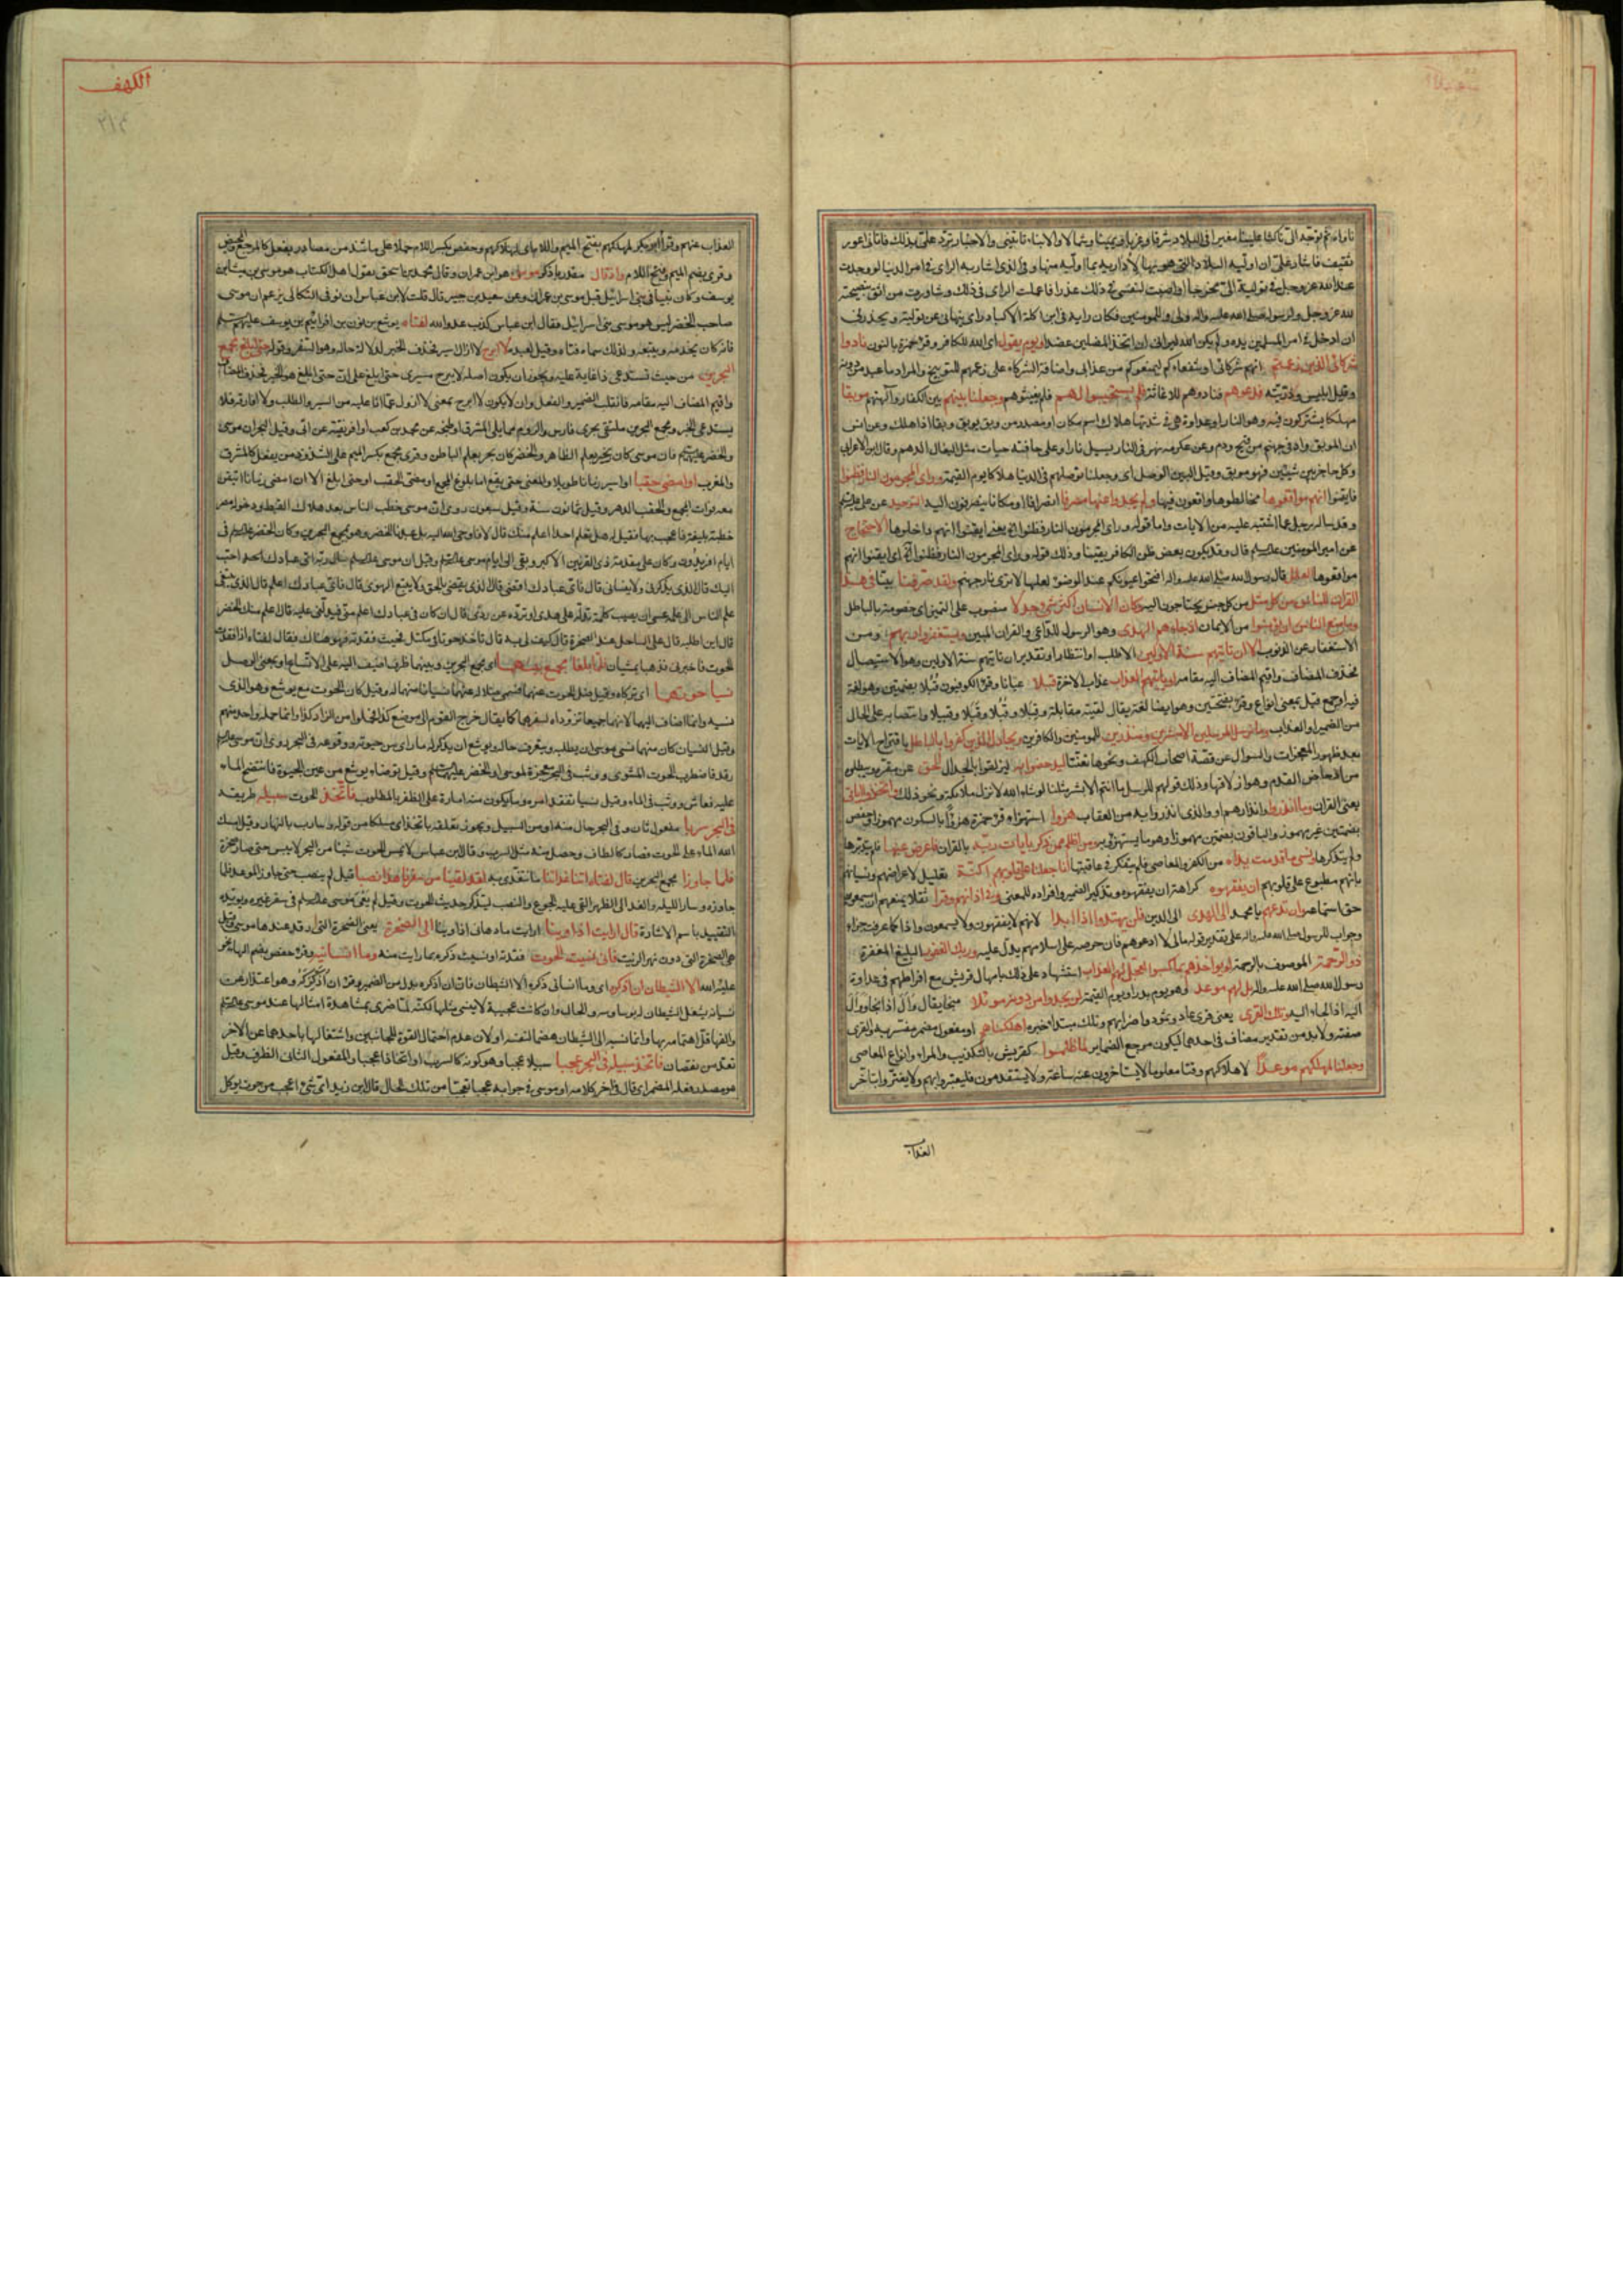 ناواه ثم توجه الى ناكثا علينا مغيرا فى البلاد شرقا وغربا ويمينا وشمالا والانباء تاتينى والاخبار ترد على بذلك فاتانى اعور
ثقيف فاشار على ان اوليه البلاد التى هو بها لاداريه بما اوليه منها وفى الذى اشار به الراى فى امر الدنيا لو وجدت
عند الله عز وجل فى توليته الى مخرجا واصبت لنفسى فى ذلك عذرا فاعملت الراى فى ذلك وشاورت من اثق بنصيحته
لله عز وجل ولرسوله صلى الله عليه واله ولى وللمومنين فكان رايه فى ابن اكلة الاكباد راى ينهانى عن توليته ويحذرنى
ان ادخل فى امر المسلمين يده ولم يكن الله ليرانى ان اتخذ المضلين عضدا ويوم يقول اى الله للكافر وقرء حمزة بالنون نادوا
شركائى الذين زعمتم انهم شركائى او شفعاءكم ليمنعوكم من عذابى واضافة الشركاء على زعمهم للتوبيخ والمراد ما عبد من دونه
وقيل ابليس وذريته فدعوهم فنادوهم للاغاثة فلم يستجيبوا لهم فلم يغيثوهم وجعلنا بينهم بين الكفار وآلهتهم موبقا
مهلكا يشتركون فيه وهو النار او عداوة هى فى شدتها هلاك اسم مكان او مصدر من وبق يوبق وبقا اذا هلك وعن انس
ان الموبق واد فى جهنم من قيح ودم وعن عكرمه نهر فى النار يسيل نارا وعلى حافته حيات مثل البغال الدهم وقال ابن الاعرابى
وكل حاجز بين شيئين فهو موبق وقيل البين الوصل اى وجعلنا توصلهم فى الدنيا هلاكا يوم القيمة وراى المجرمون النار فظنوا
فايقنوا انهم مواقعوها مخالطوها واقعون فيها ولم يجدوا عنها مصرفا انصرافا او مكانا ينصرفون اليه التوحيد عن على
وقد ساله رجل عما اشتبه عليه من الايات واما قوله وراى المجرمون النار فظنوا انهم يعنى ايقنوا انهم داخلوها الاحتجاج
عن امير المومنين قال وقد يكون بعض ظن الكافر يقينا وذلك قوله وراى المجرمون النار فظنوا انهم اى ايقنوا انهم
مواقعوها العلل قال رسول الله صلى الله عليه واله افتحوا عيونكم عند الوضوء لعلها لا ترى نار جهنم ولقد صرفنا بينا فى هذا
القران للناس من كل مثل من كل جنس يحتاجون اليه وكان الانسان اكثر شىء جدلا منصوب على التميز اى خصومة بالباطل
وما منع الناس ان يؤمنوا من الايمان اذ جاءهم الهدى وهو الرسول للداعى والقران المبين ويستغفروا ربهم ومن
الاستغفار عن الذنوب الا ان تاتيهم سنة الاولين الا طلب او انتظار او تقدير ان تاتيهم سنة الاولين وهو الاستيصال
فحذف المضاف واقيم المضاف اليه مقامه او ياتيهم العذاب عذاب الاخرة قبلا عيانا وقرء الكوفيون قبلا بضمتين وهو لغة
فيه او جمع قبيل بمعنى انواع وقرء بفتحتين وهو ايضا لغة يقال لقيته مقابلة وقبلا وقبلا وقبلا وقبيلا وانتصابه على الحال
من الضمير او العذاب وما نرسل المرسلين الا مبشرين ومنذرين للمومنين والكافرين ويجادل الذين كفروا بالباطل باقتراح الايات
بعد ظهور المعجزات والسوال عن قصة اصحاب الكهف ونحوها تعنتا ليدحضوا به ليزلقوا بالجدال الحق عن مقره ويبطلوه
من ادحاض القدم وهو ازلاقها وذلك قولهم للرسل ما انتم الا بشر مثلنا لو شاء الله لانزل ملائكة ونحو ذلك واتخذوا اياتى
يعنى القران وما انذروا وانذارهم او والذى انذروا به من العقاب هزوا استهزاء قرء حمزة هزءا بالسكون مهموزا وحفص
بضمتين غير مهموز والباقون بضمتين مهموزا وهو ما يستهزؤ به ومن اظلم ممن ذكر بايات ربه بالقران فاعرض عنها فلم يتدبرها
ولم يتذكرها ونسى ما قدمت يداه من الكفر والمعاصى فلم يتفكر فى عاقبتها انا جعلنا على قلوبهم اكنة تعليل لاعراضهم ونسيانهم
بانهم مطبوع على قلوبهم ان يفقهوه كراهة ان يفقهوه وتذكير الضمير وافراده للمعنى وفى اذانهم وقرا ثقلا يمنعهم ان يسمعوه
حق استماعه وان تدعهم يا محمد الى الهدى الى الدين فلن يهتدوا اذا ابدا لانهم لا يفقهون ولا يسمعون واذا كما عرفت جزاء
وجواب للرسول صلى الله عليه واله على تقدير قوله مالى لا ادعوهم فان حرصه على اسلامهم يدل عليه وربك الغفور البليغ المغفرة
ذو الرحمة الموصوف بالرحمة لو يواخذهم بما كسبوا لعجل لهم العذاب استشهاد على ذلك بامهال قريش مع افراطهم فى عداوة
رسول الله صلى الله عليه واله بل لهم موعد وهو يوم بدر او يوم القيمة لن يجدوا من دونه موئلا منجا يقال وال اذا نجا ووال
اليه اذا لجاء اليه وتلك القرى يعنى قرى عاد وثمود واضرابهم وتلك مبتدا خبره اهلكناهم او مفعول مضمر مفسر به والقرى
صفته ولا بد من تقدير مضاف فى احدهما ليكون مرجع الضماير لما ظلموا كقريش بالتكذيب والمراء وانواع المعاصى
وجعلنا لمهلكهم موعدا لاهلاكهم وقتا معلوما لا يستاخرون عنه ساعة ولا يستقدمون فليعتبروا بهم ولا يغتروا بتاخر
العذاب
الكهف
٣١٤
العذاب عنهم وقرأ ابو بكر لمهلكهم بفتح الميم واللام اى لهلاكهم وحفص بكسر اللام حملا على ما شذ من مصادر يفعل كالمرجع والمحيض
وقرى بضم الميم وفتح اللام واذ قال مقدر باذكر موسى هو ابن عمران وقال محمد بن اسحق يقول اهل الكتاب هو موسى بن ميشا بن
يوسف وكان نبيا فى بنى اسرائيل قبل موسى بن عمران وعن سعيد بن جبير قال قلت لابن عباس ان نوف البكالى يزعم ان موسى
صاحب الخضر ليس هو موسى بنى اسرائيل فقال ابن عباس كذب عدو الله لفتاه يوشع بن نون بن افراثيم بن يوسف
فانه كان يخدمه ويتبعه ولذلك سماه فتاه وقيل لعبده لا ابرح لا ازال اسير فحذف الخبر لدلالة حاله وهو السفر وقوله حتى ابلغ مجمع
البحرين من حيث تستدعى ذا غاية عليه ويجوز ان يكون اصله لا يبرح مسيرى حتى ابلغ على ان حتى ابلغ هو الخبر فحذف المضاف
واقيم المضاف اليه مقامه فانقلب الضمير والفعل وان لا يكون لا ابرح بمعنى لا ازول عما انا عليه من السير والطلب ولا افارقه فلا
يستدعى الخبر ومجمع البحرين ملتقى بحرى فارس والروم مما يلى المشرق او طنجه عن محمد بن كعب او افريقية عن ابى وقيل البحران موسى
والخضر فان موسى كان بحر بعلم الظاهر والخضر كان بحر بعلم الباطن وقرى مجمع بكسر الميم على الشذوذ من يفعل كالمشرق
والمغرب او امضى حقبا او اسير زمانا طويلا والمعنى حتى يقع اما بلوغ المجمع او مضى الحقب او حتى ابلغ الا ان امضى زمانا اتيقن
معه فوات المجمع والحقب الدهر وقيل ثمانون سنة وقيل سبعون روى ان موسى خطب الناس بعد هلاك القبط ودخوله مصر
خطبة بليغة فاعجب بها فقيل له هل تعلم احدا اعلم منك قال لا فاوحى الله اليه بلى عبدنا الخضر وهو بمجمع البحرين وكان الخضر فى
ايام افريدون وكان على مقدمة ذى القرنين الاكبر وبقى الى ايام موسى وقيل ان موسى سال ربه اى عبادك احب
اليك قال الذى يذكرنى ولا ينسانى قال فاى عبادك اقضى قال الذى يقضى بالحق ولا يتبع الهوى قال فاى عبادك اعلم قال الذى يبتغى
علم الناس الى علمه عسى ان يصيب كلمة تدله على هدى او ترده عن ردى قال ان كان فى عبادك اعلم منى فدلنى عليه قال اعلم منك الخضر
قال اين اطلبه قال على الساحل عند الصخرة قال كيف لى به قال تاخذ حوتا فى مكتل فحيث فقدته فهو هناك فقال لفتاه اذا فقدت
الحوت فاخبرنى فذهبا يمشيان فلما بلغا مجمع بينهما اى مجمع البحرين وبينهما ظرف اضيف اليه على الاتساع او بمعنى الوصل
نسيا حوتهما اى تركاه وقيل ضل الحوت عنهما فسمى ضلاله عنهما نسيانا منهما له وقيل كان الحوت مع يوشع وهو الذى
نسيه وانما اضاف اليهما لانهما جميعا تزوداه لسفرهما كما يقال خرج القوم الى موضع كذا وحملوا من الزاد كذا وانما حمله واحد منهم
وقيل النسيان كان منهما نسى موسى ان يطلبه ويتعرف حاله ويوشع ان يذكر له ما راى من حيوته ووقوعه فى البحر روى ان موسى
رقد فاضطرب الحوت المشوى ووثب فى البحر معجزة لموسى او الخضر وقيل توضاء يوشع من عين الحيوة فانتضح الماء
عليه فعاش ووثب فى الماء وقيل نسيا تفقد امره وما يكون منه امارة على الظفر بالمطلوب فاتخذ الحوت سبيله طريقه
فى البحر سربا مفعول ثان وفى البحر حال منه او من السبيل ويجوز تعلقه باتخذ اى مسلكا من قوله وسارب بالنهار وقيل امسك
الله الماء على الحوت فصار كالطاق وحصل منه مثل السرب وقال ابن عباس لا يمس الحوت شيئا من البحر الا يبس حتى صار صخرة
فلما جاوزا مجمع البحرين قال لفتاه اتنا غداءنا ما نتغدى به لقد لقينا من سفرنا هذا نصبا قيل لم ينصب حتى جاوز الموعد فلما
جاوزه وسار الليلة والغد الى الظهر القى عليه الجوع والنصب ليتذكر حديث الحوت وقيل لم يعى موسى فى سفر غيره ويؤيده
التقييد باسم الاشارة قال ارايت اذ اوينا ارايت ما دهانى اذ اوينا الى الصخرة يعنى الصخرة التى رقد عندها موسى وقيل
هى الصخرة التى دون نهر الزيت فانى نسيت الحوت فقدته او نسيت ذكره بما رايت منه وما انسانيه وقرء حفص بضم الهاء نحو
عليه الله الا الشيطان ان اذكره اى وما انسانى ذكره الا الشيطان فان ان اذكره بدل من الضمير وقرء ان اذكركه وهو اعتذار عن
نسيانه بشغل الشيطان له بوساوسه والحال وان كانت عجيبة لا ينسى مثلها لكنه لما ضرى بمشاهدة امثالها عند موسى
والفها قل اهتمامه بها وانما نسبه الى الشيطان هضما لنفسه او لان عدم احتمال القوة للجانبين واشتغالها باحدهما عن الاخر
تعد من نقصان فاتخذ سبيله فى البحر عجبا سبيلا عجبا وهو كونه كالسرب او اتخاذا عجبا والمفعول الثانى الظرف وقيل
هو مصدر فعله المضمر اى قال فى اخر كلامه او موسى فى جوابه عجبا تعجبا من تلك الحال قال ابن زيد اى شىء اعجب من حوت يؤكل